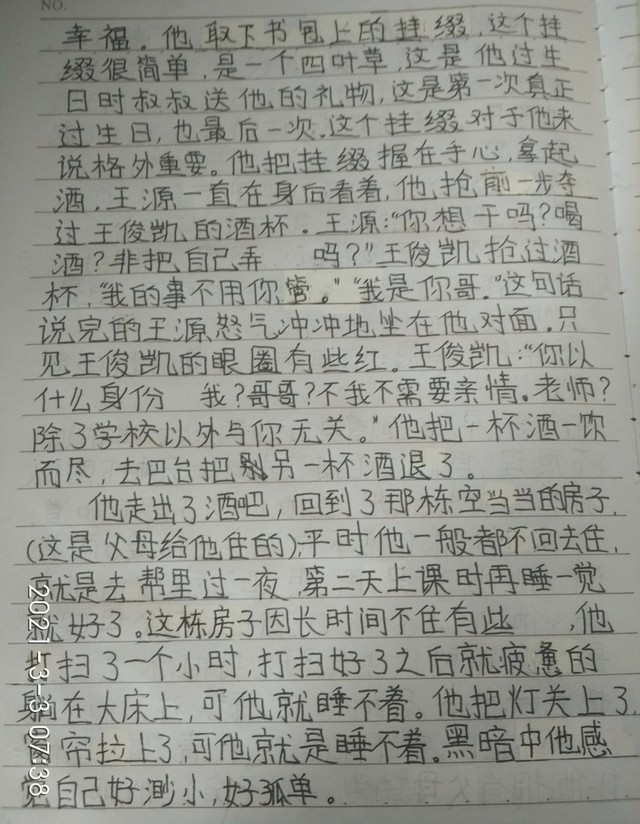 NO.
幸福。他取下书包上的挂缀,这个挂
缀很简单,是一个四叶草,这是他过生
日时叔叔送他的礼物,这是第一次真正
过生日,也最后一次.这个挂缀对于他来
说格外重要。他把挂缀握在手心,拿起
酒,王源一直在身后看着,他抢前一步夺
过王俊凯的酒杯.王源:“你想干吗?喝
酒?非把自己弄 吗?”王俊凯抢过酒
杯,“我的事不用你管。”“我是你哥。”这句话
说完的王源怒气冲冲地坐在他对面.只
见王俊凯的眼圈有些红.王俊凯:“你以
什么身份 我?哥哥?不我不需要亲情。老师?
除了学校以外与你无关。”他把一杯酒一饮
而尽,去巴台把另一杯酒退了。
他走出了酒吧,回到了那栋空当当的房子.
(这是父母给他住的),平时他一般都不回去住,
就是去帮里过一夜,第二天上课时再睡一觉
就好了。这栋房子因长时间不住有些 ,他
打扫了一个小时,打扫好了之后就疲惫的
躺在大床上,可他就睡不着。他把灯关上了,
帘拉上了,可他就是睡不着。黑暗中他感
觉自己好渺小,好孤单。